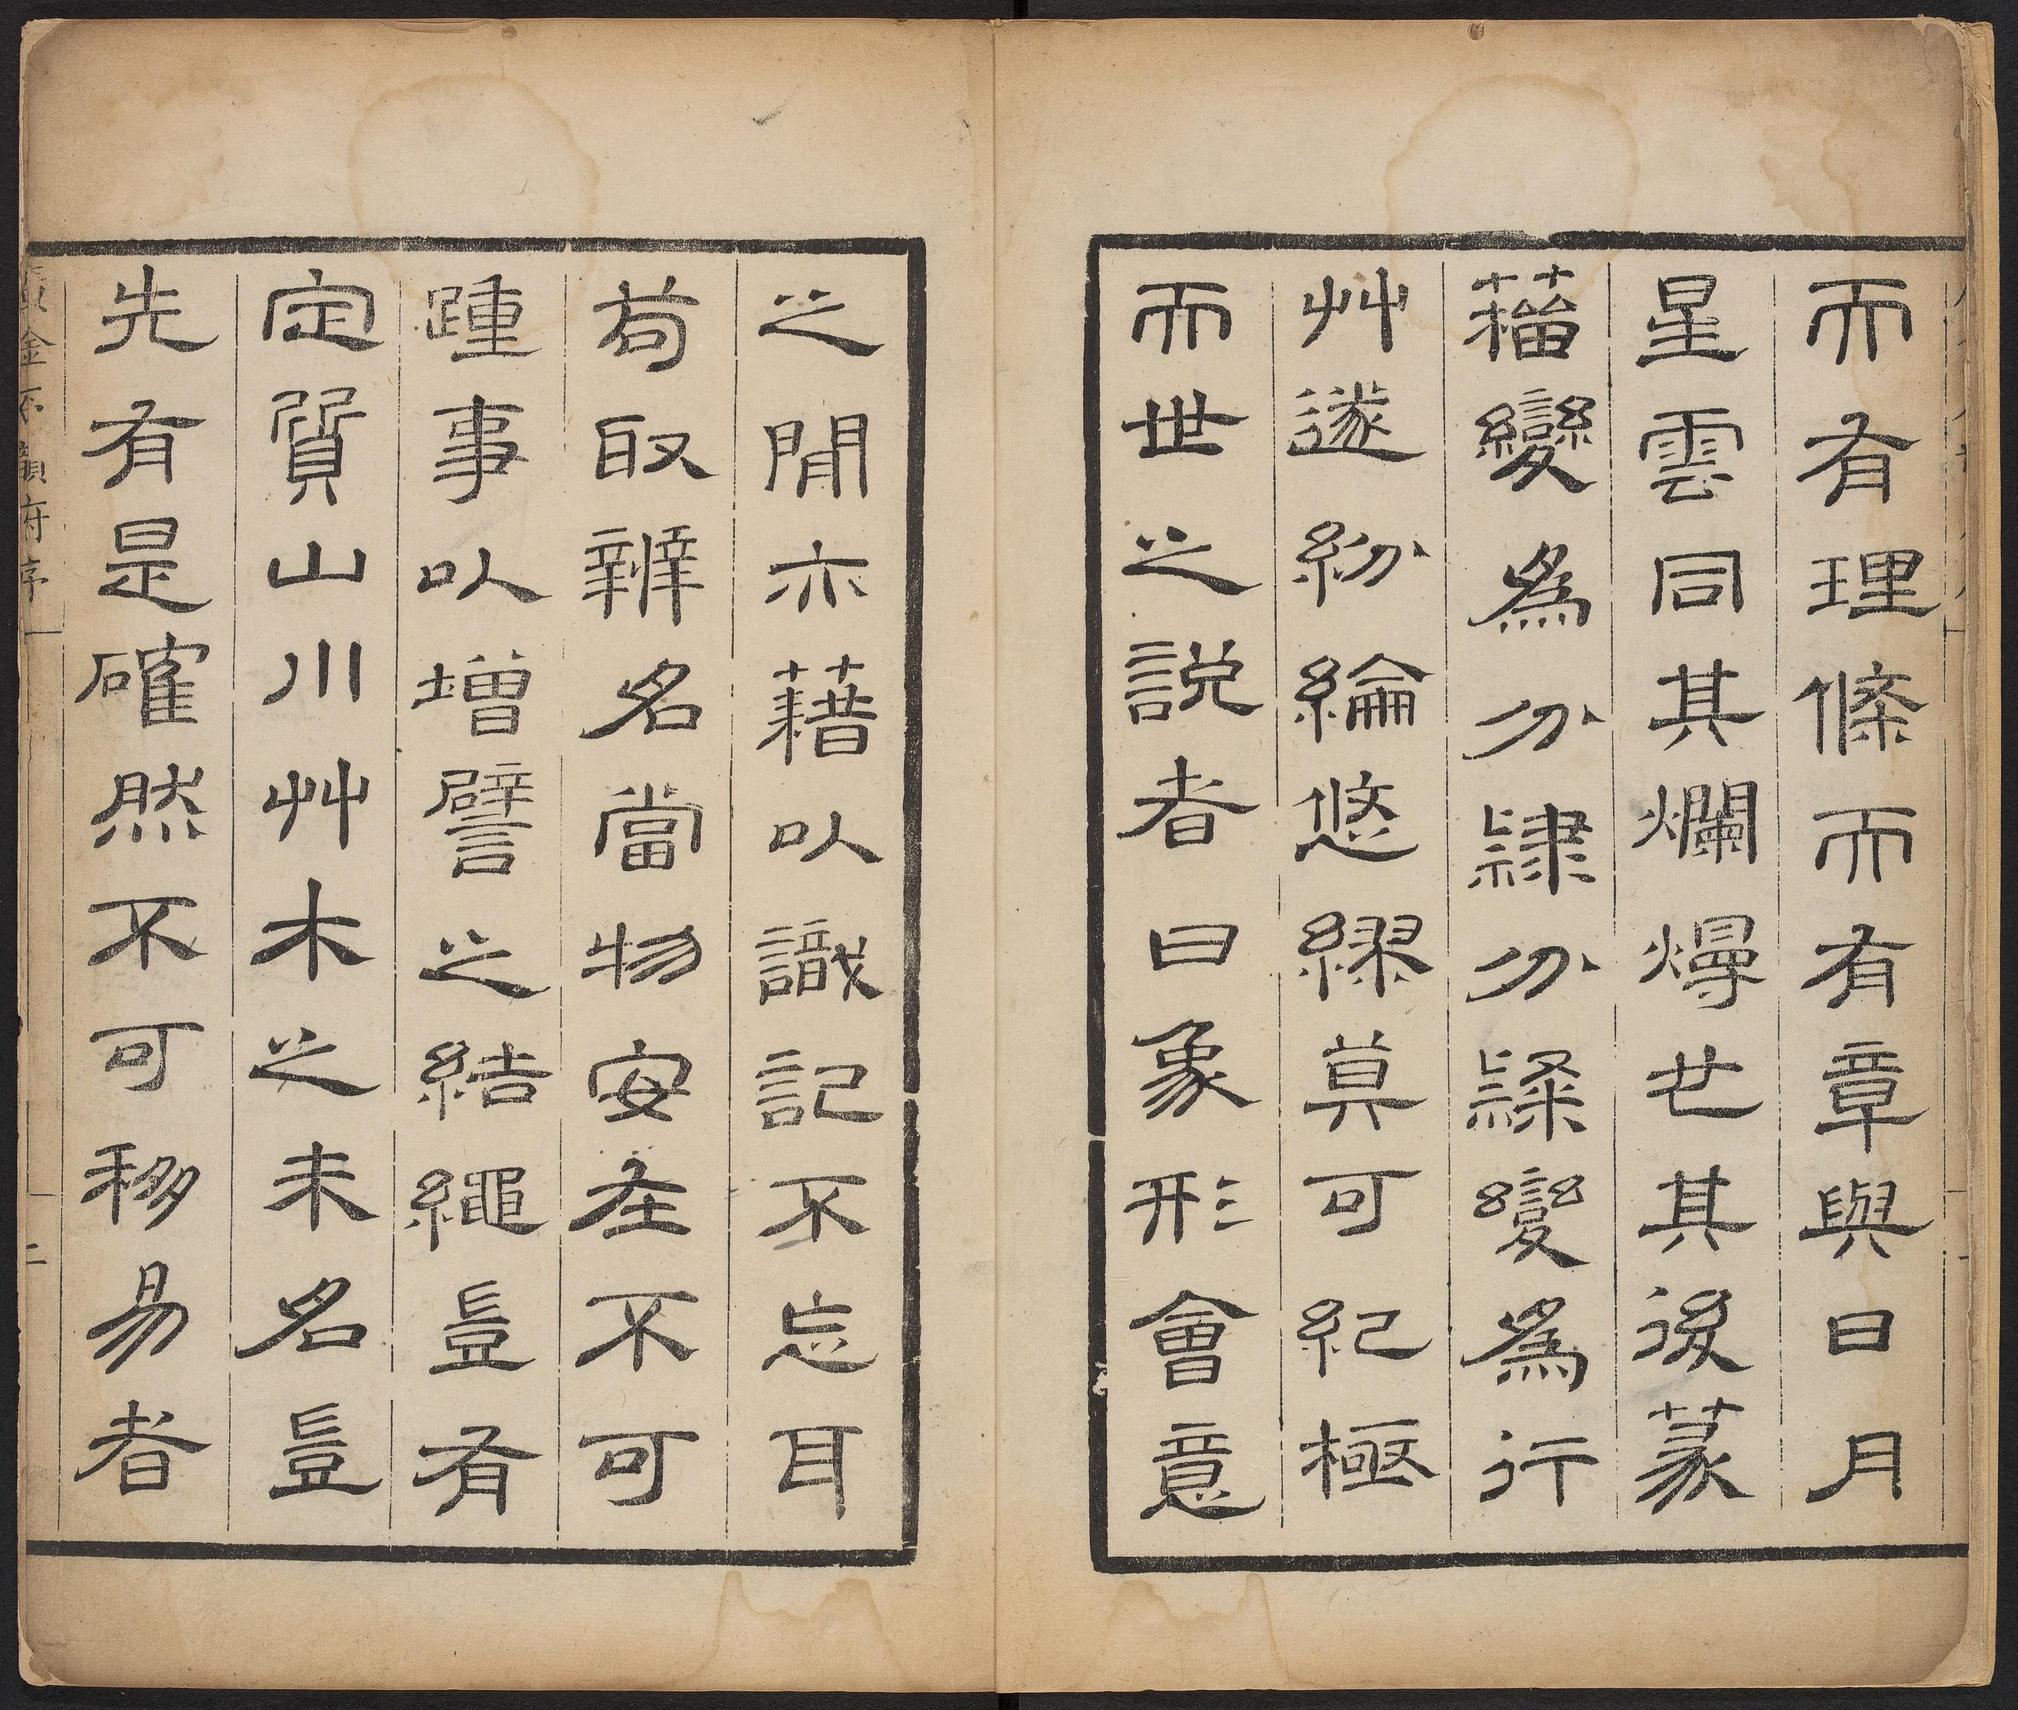 而有理條而有章與日月
星雲同其爛熳也其後篆
籀變爲分隸分隸變爲行
艸遂紛綸悠繆莫可紀極
而世之説者曰象形會意
之閒亦藉以識記不忘耳
苟取辨名當物安在不可
踵事以增譬之結繩豈有
定質山川艸木之未名豈
先有是確然不可移易者
廣金石韻府序 二